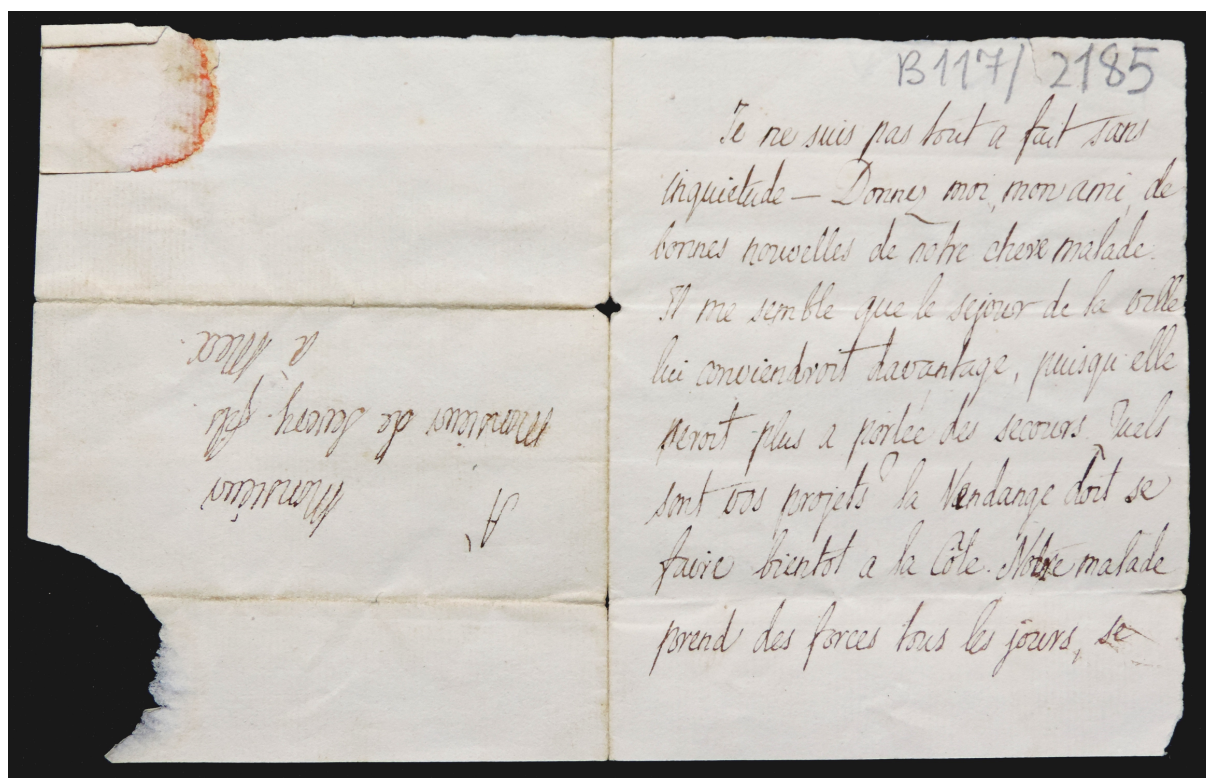 B 117 / 2185
Je ne suis pas tout a fait sans
inquietude — Donnez moi, mon ami, de
bonnes nouvelles de notre chere malade.
Il me semble que le sejour de la ville
lui conviendroit davantage, puisqu'elle
seroit plus a portée des secours. Quels
sont vos projets? la Vendange doit se
faire bientot a la Côte. Notre malade
prend des forces tous les jours, se
A
Monsieur
Monsieur de fils
à Mex.